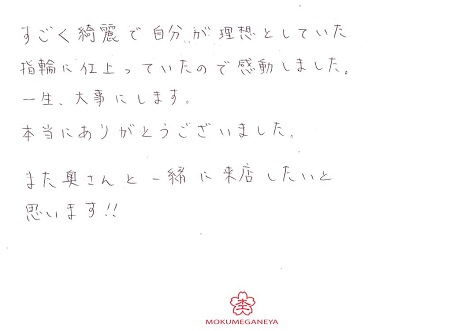 すごく綺麗で自分が理想としていた
指輪に仕上っていたので感動しました。
一生、大事にします。
本当にありがとうございました。
また奥さんと一緒に来店したいと
思います!!
MOKUMEGANEYA